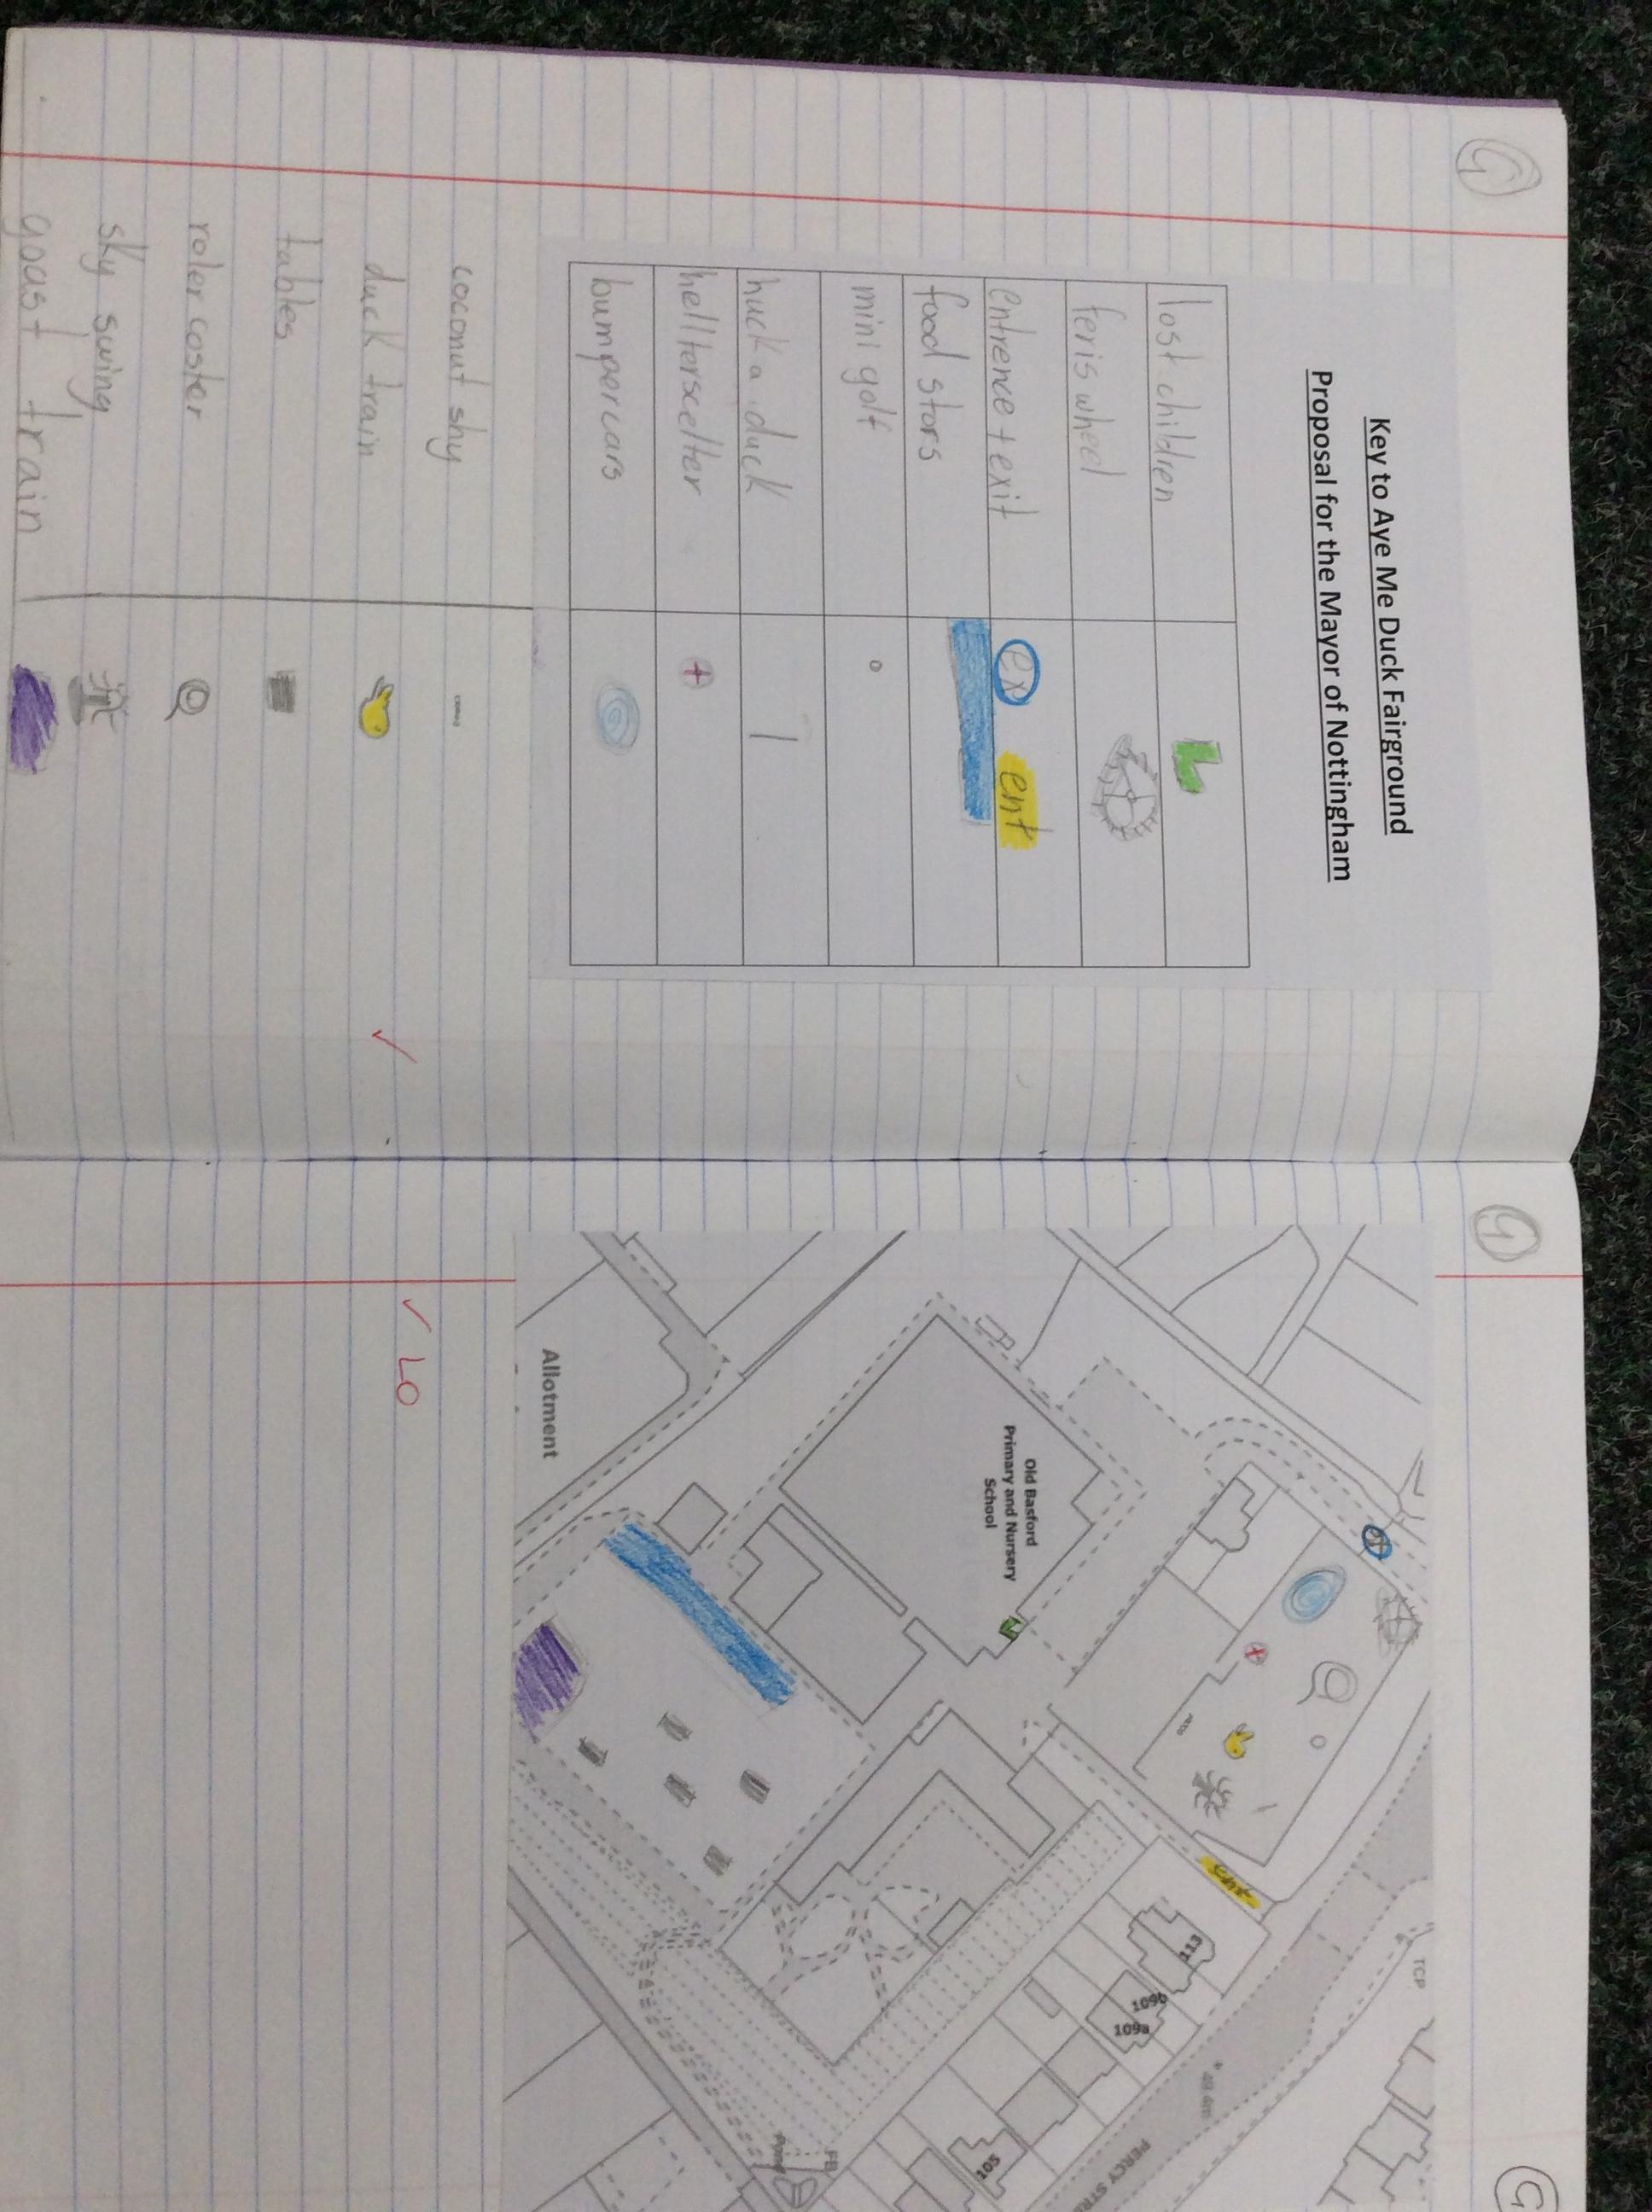 G
Key to Aye Me Duck Fairground
Proposal for the Mayor of Nottingham
lost children
feris wheel
entrence + exit ex ent
food stors
mini golf
huck a duck
hellterscelter
bumpercars
coconut shy
duck train
tables
roler coster
sky swing
goust train
G
TCP
ex
ent
Old Basford
Primary and Nursery
School
113
109b
109a
49.4m
PERCY STR
105
FB
Allotment
LO
G